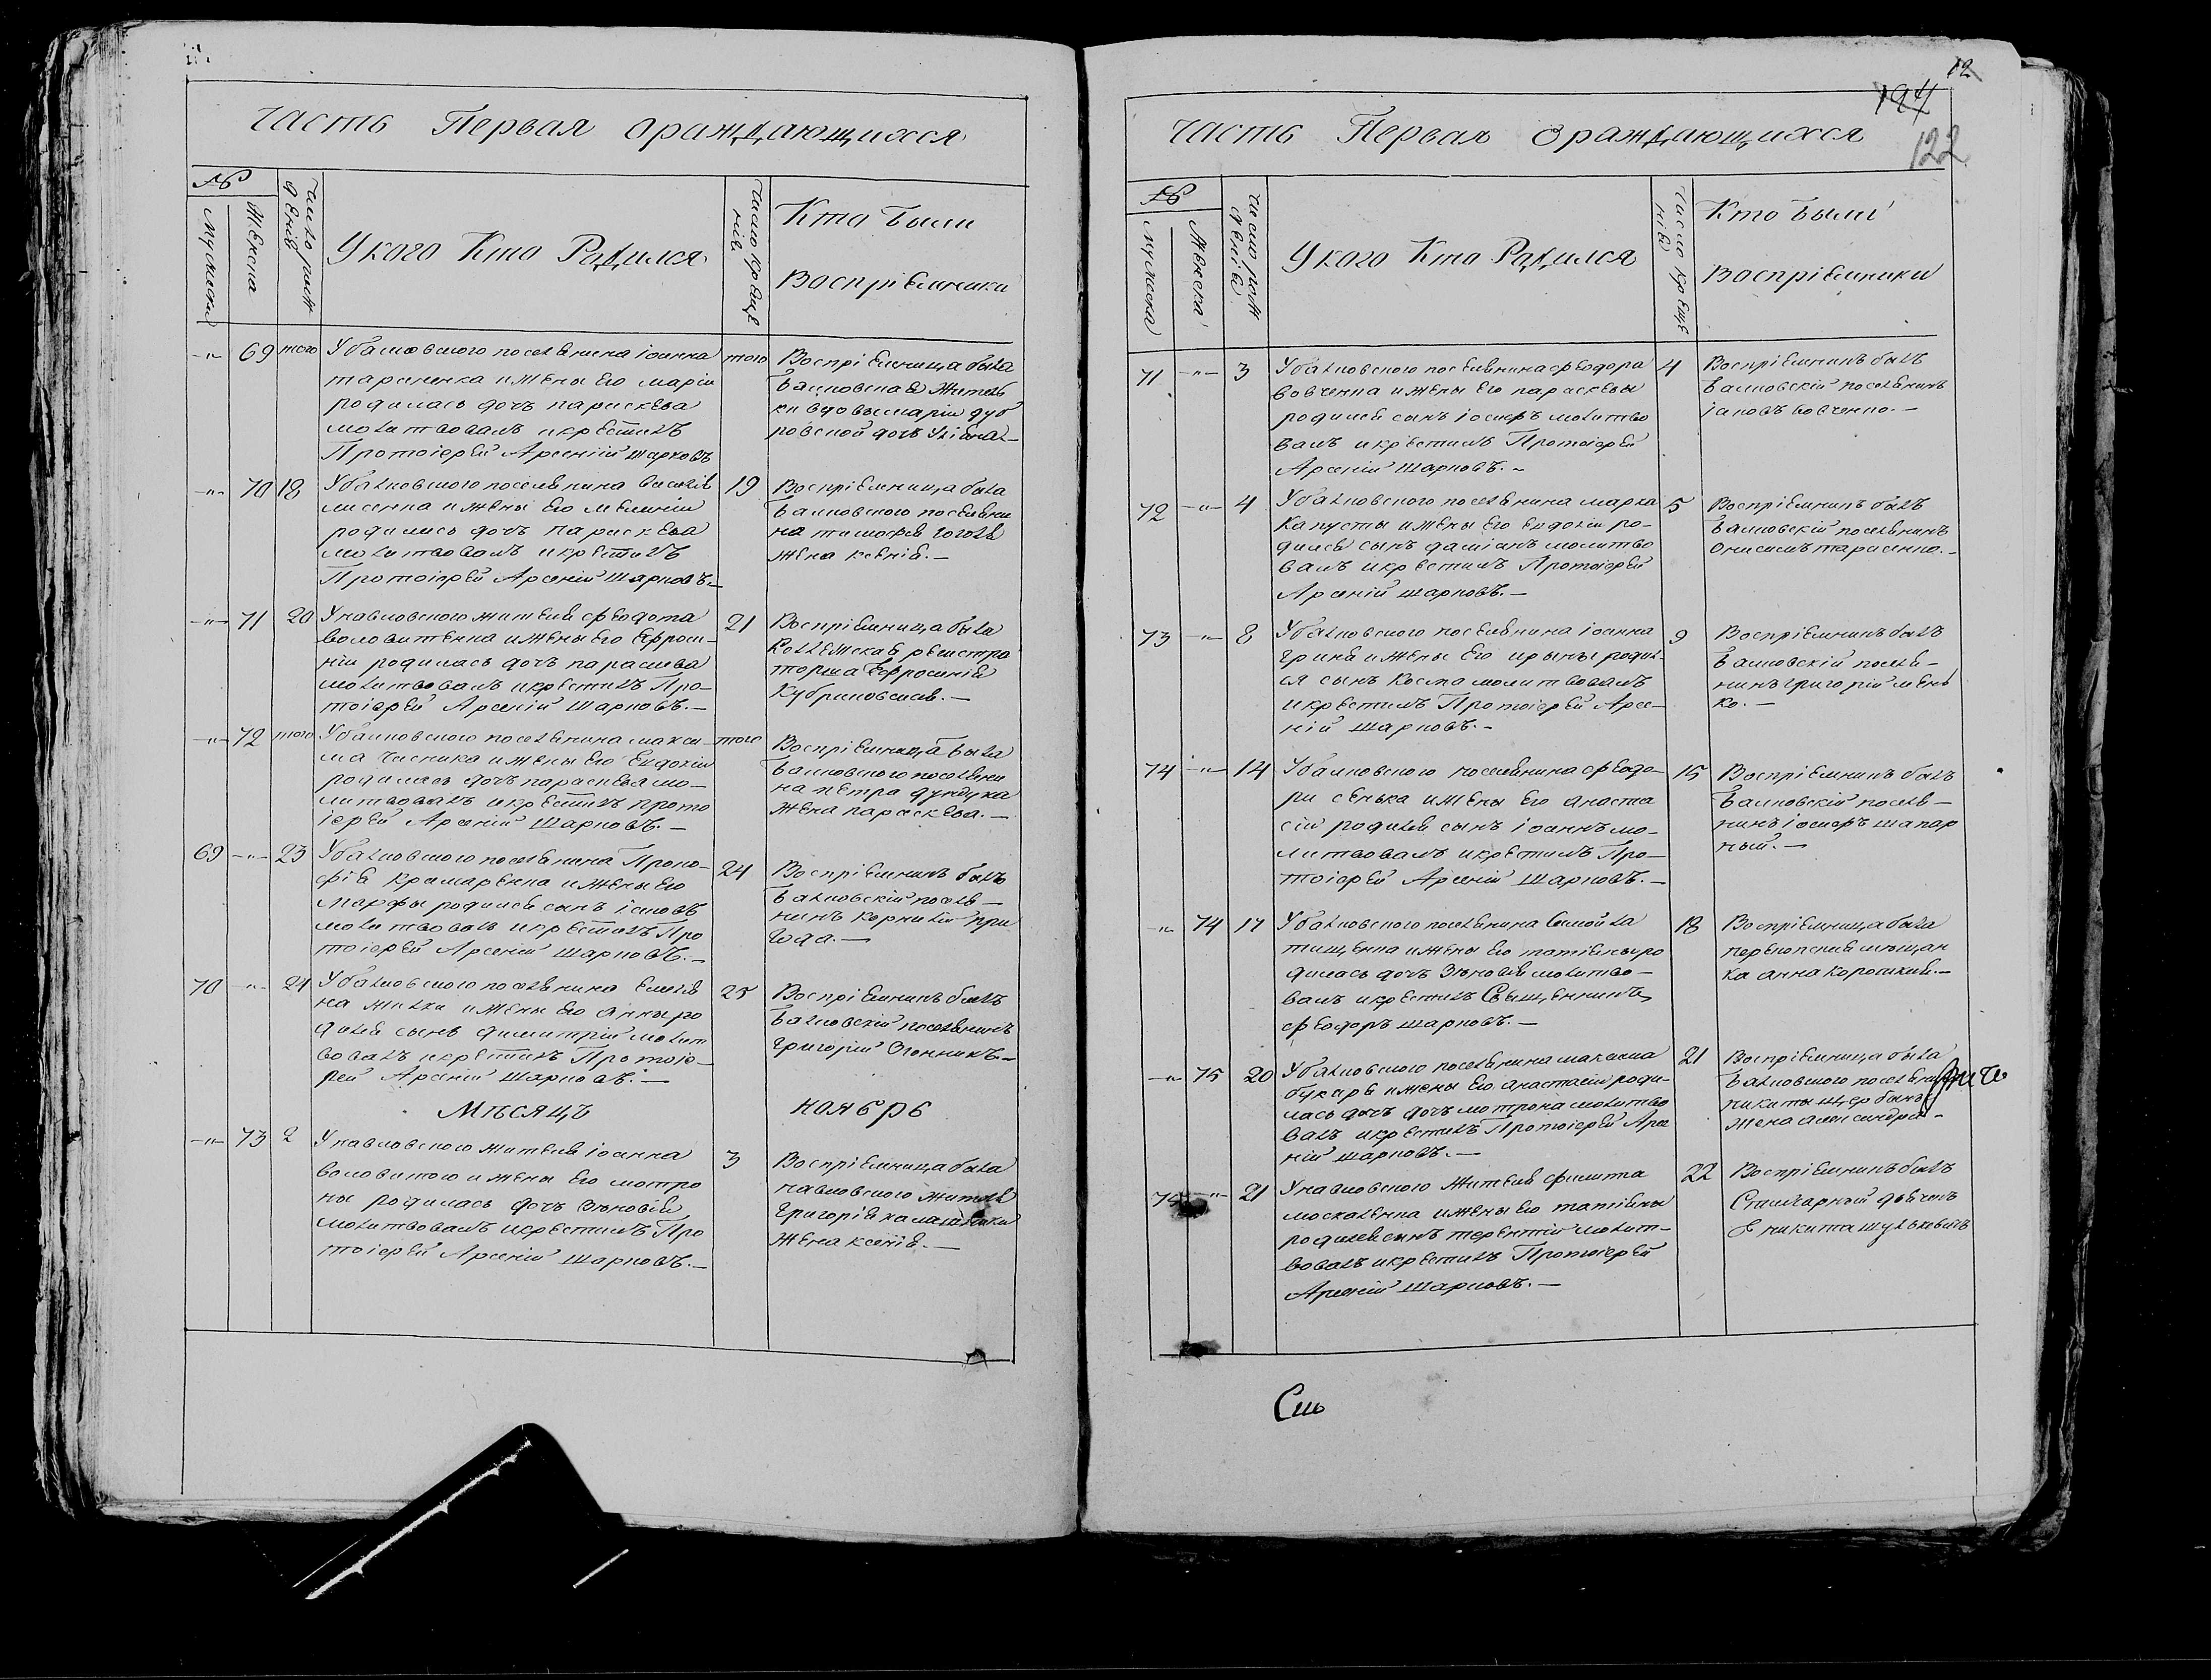 Часть Первая ораждающихся
№
Мужеска
Женска
Число рож
деніе
У кого Кто Радился
Число креще
ніе
Кто были
Воспріемники
-"- 69 того
У балковского поселенина іоанна
тараненка и жены его маріи
родилась дочь парискева
молитвовалъ и крестилъ
Протоіерей Арсеній шарковъ
того
Воспріемница была
балковская жител
ки вдовы маріи дуб
ровской дочь
-"- 70 18
У балковского поселенина василія
лисенка и жены его мелании
родилась дочь парискева
молитвовалъ и крестилъ
Протоіерей Арсеній шарковъ.-
19
Воспріемница была
балковского поселени
на тимофея гоголя
жена ксенія.-
-"- 71 20
У павловского жителя федота
воловитенка и жены его Ефроси-
ніи родилась дочь параскева
молитвовалъ и крестилъ Про-
тоіерей Арсеній шарковъ.-
21
Воспріемница была
Коллежская регистра
торша Ефросинія
Кубраковская.-
-"- 72 того
У балковского поселенина макси-
ма чисника и жены его Евдокіи
родилась дочь параскева мо-
литвовалъ и крестилъ прото
іерей Арсеній шарковъ.-
того
Воспріемница была
балковского поселени
на петра дундука
жена параскева.-
69 -"- 23
У балковского поселенина Проко-
фія Крамаренка и жены его
Марфы родился сынъ іаковъ
молитвовалъ и крестилъ Про
тоіерей Арсеній шарковъ.-
24
Воспріемникъ былъ
балковскій поселе-
нинъ корнилій при
года.-
70 -"- 24
У балковского поселенина Емелія
на жилки и жены его анны ро
дился сынъ димитрій молит
вовалъ и крестилъ Протоіе-
рей Арсеній шарковъ.-
25
Воспріемникъ былъ
балковскій поселенинъ
григорій Огонникъ.-
Мѣсяцъ ноябрь
-"- 73 2
У павловского жителя іоанна
воловитого и жены его мотро
ны родилась дочь Зѣновія
молитвовалъ и крестилъ Про
тоіерей Арсеній шарковъ.-
3
Воспріемница была
павловского жителя
григорія калашника
жена ксенія.-
12
194
122
Часть Первая ораждающихся
№
Мужеска
Женска
Число рож
деніе
У кого Кто Радился
Число креще
ніе
Кто были
Воспріемники
71 -"- 3
У балковского поселенина феодора
вовченка и жены его параскевы
родился сынъ іосифъ молитво
валъ и крестилъ Протоіерей
Арсеній шарковъ.-
4
Воспріемникъ былъ
балковскій поселенинъ
іаковъ вовченко.-
72 -"- 4
У балковского поселенина марка
капусты и жены его евдокіи ро-
дился сынъ даміанъ молитво
валъ и крестилъ Протоіерей
Арсеній шарковъ.-
5
Воспріемникъ былъ
балковскій поселенинъ
онисимъ тарасенко.-
73 -"- 8
У балковского поселенина іоанна
гриня и жены его ирины родил-
ся сынъ косма молитвовалъ
и крестилъ Протоіерей Арсе-
ній шарковъ.-
9
Воспріемникъ былъ
балковскій поселе-
нинъ григорій мень
ко.-
74 -"- 14
У балковского поселенина феодо-
ра сенька и жены его анаста
сіи родился сынъ іоаннъ мо-
литвовалъ и крестилъ Про-
тоіерей Арсеній шарковъ.-
15
Воспріемникъ былъ
балковскій поселе-
нинъ іосифъ шапар
ный.-
-"- 74 17
У балковского поселенина Самойла
тищенка и жены его татіаны ро
дилась дочь Зѣновія молитво-
валъ и крестилъ Священникъ
феодоръ шарковъ.-
18
Воспріемница была
перекопская мѣщан
ка анна короткая.-
-"- 75 20
У балковского поселенина максима
бухаря и жены его анастасіи роди-
лась дочь дочь мотрона молитво
валъ и крестилъ Протоіерей Арсе
ній шарковъ.-
21
Воспріемница была
балковского поселенина
никиты щербины
жена александра.-
75 -"- 21
У павловского жителя филипа
москаленка и жены его татіаны
родился сынъ терентій молит-
вовалъ и крестилъ Протоіерей
Арсеній шарковъ.-
22
Воспріемникъ былъ
никита шулькевичъ